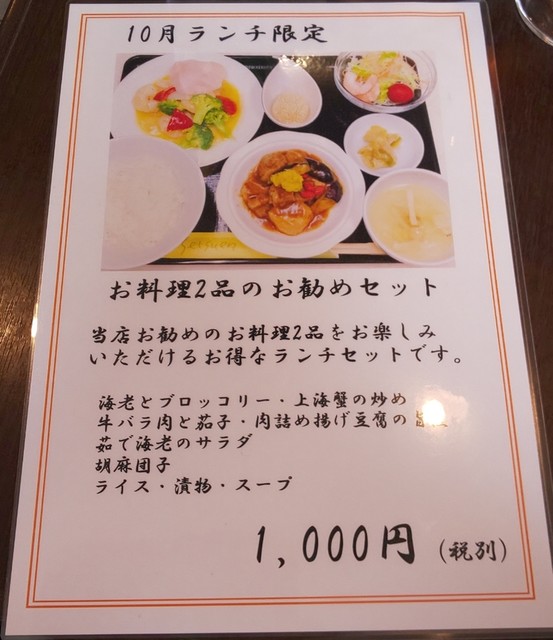 10月ランチ限定
お料理2品のお勧めセット
当店お勧めのお料理2品をお楽しみ
いただけるお得なランチセットです。
海老とブロッコリー・上海蟹の炒め
牛バラ肉と茄子・肉詰め揚げ豆腐の
茹で海老のサラダ
胡麻団子
ライス・漬物・スープ
1,000円（税別）